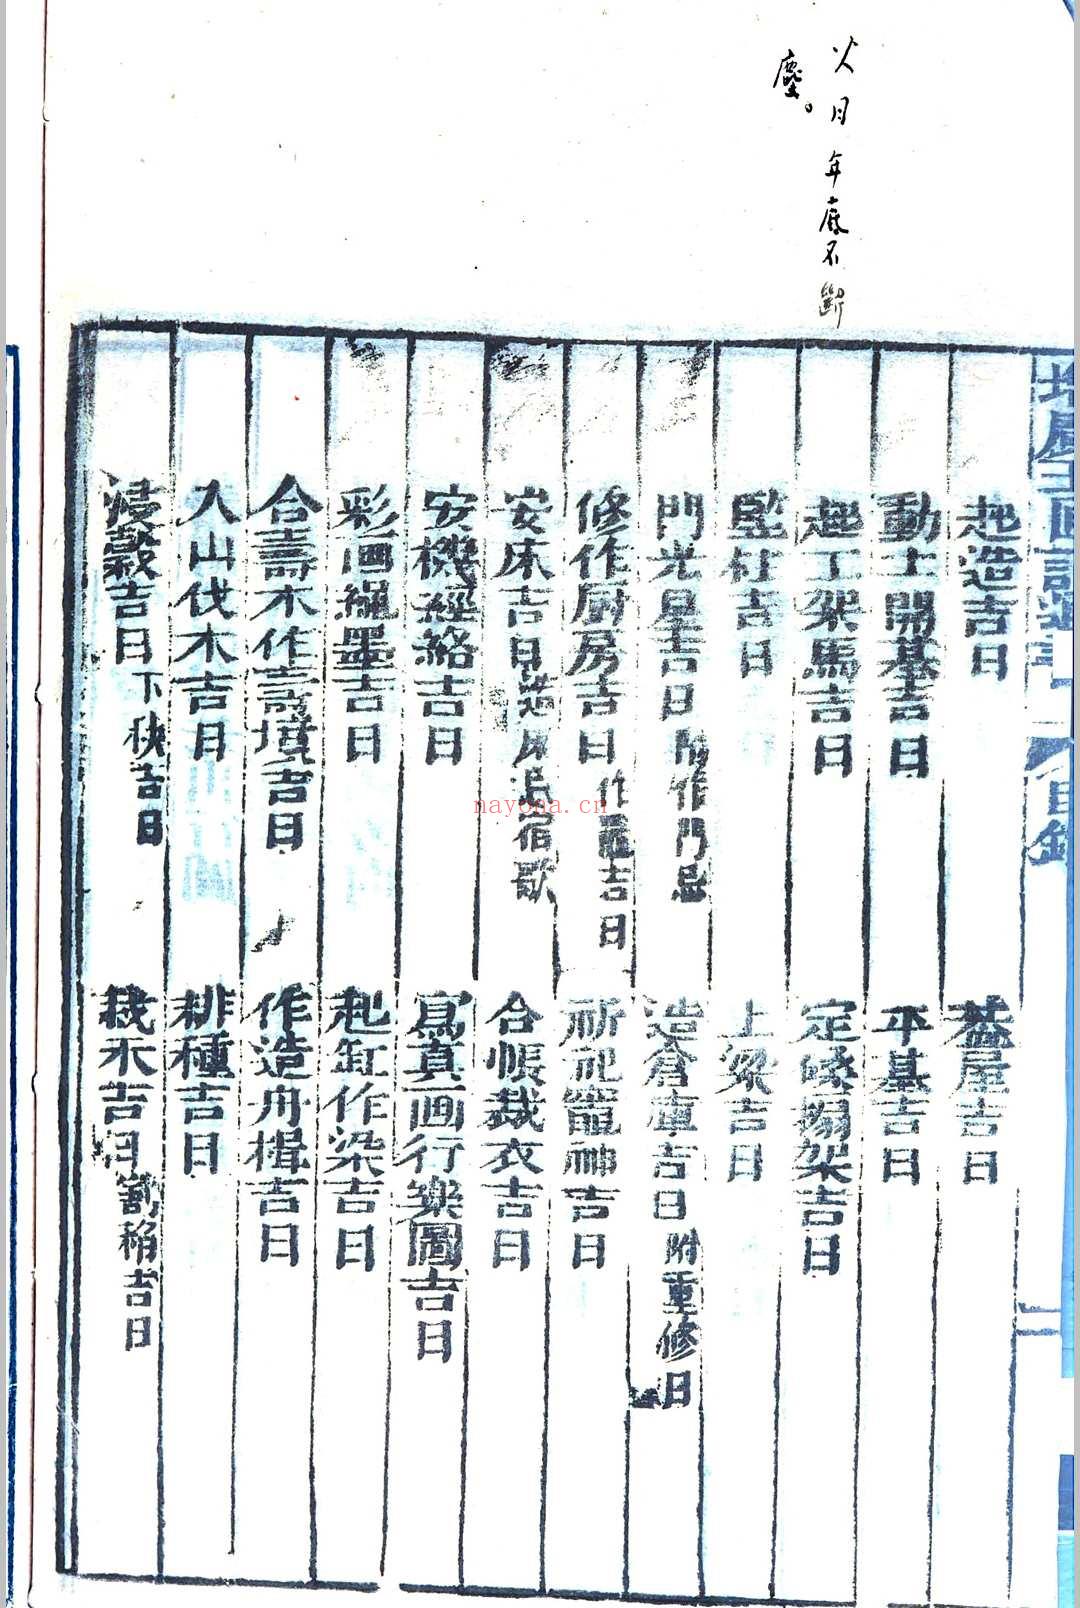 火日年底不斷
塵。
目錄
起造吉日
蓋屋吉日
動土開基吉日
平基吉日
起工架馬吉日
定磉搧架吉日
竪柱吉日
上梁吉日
門光星吉日 附作門忌
造倉庫吉日 附重修日
修作厨房吉日 作竈吉日
祈祀竈神吉日
安床吉日 造床忌宿歌
合帳裁衣吉日
安機經絡吉日
寫真画行樂圖吉日
彩画繩墨吉日
起缸作染吉日
合壽木作壽墳吉日
作造舟楫吉日
入山伐木吉日
耕種吉日
浸穀吉日 下秧吉日
栽禾吉日 割稻吉日
nayona.cn